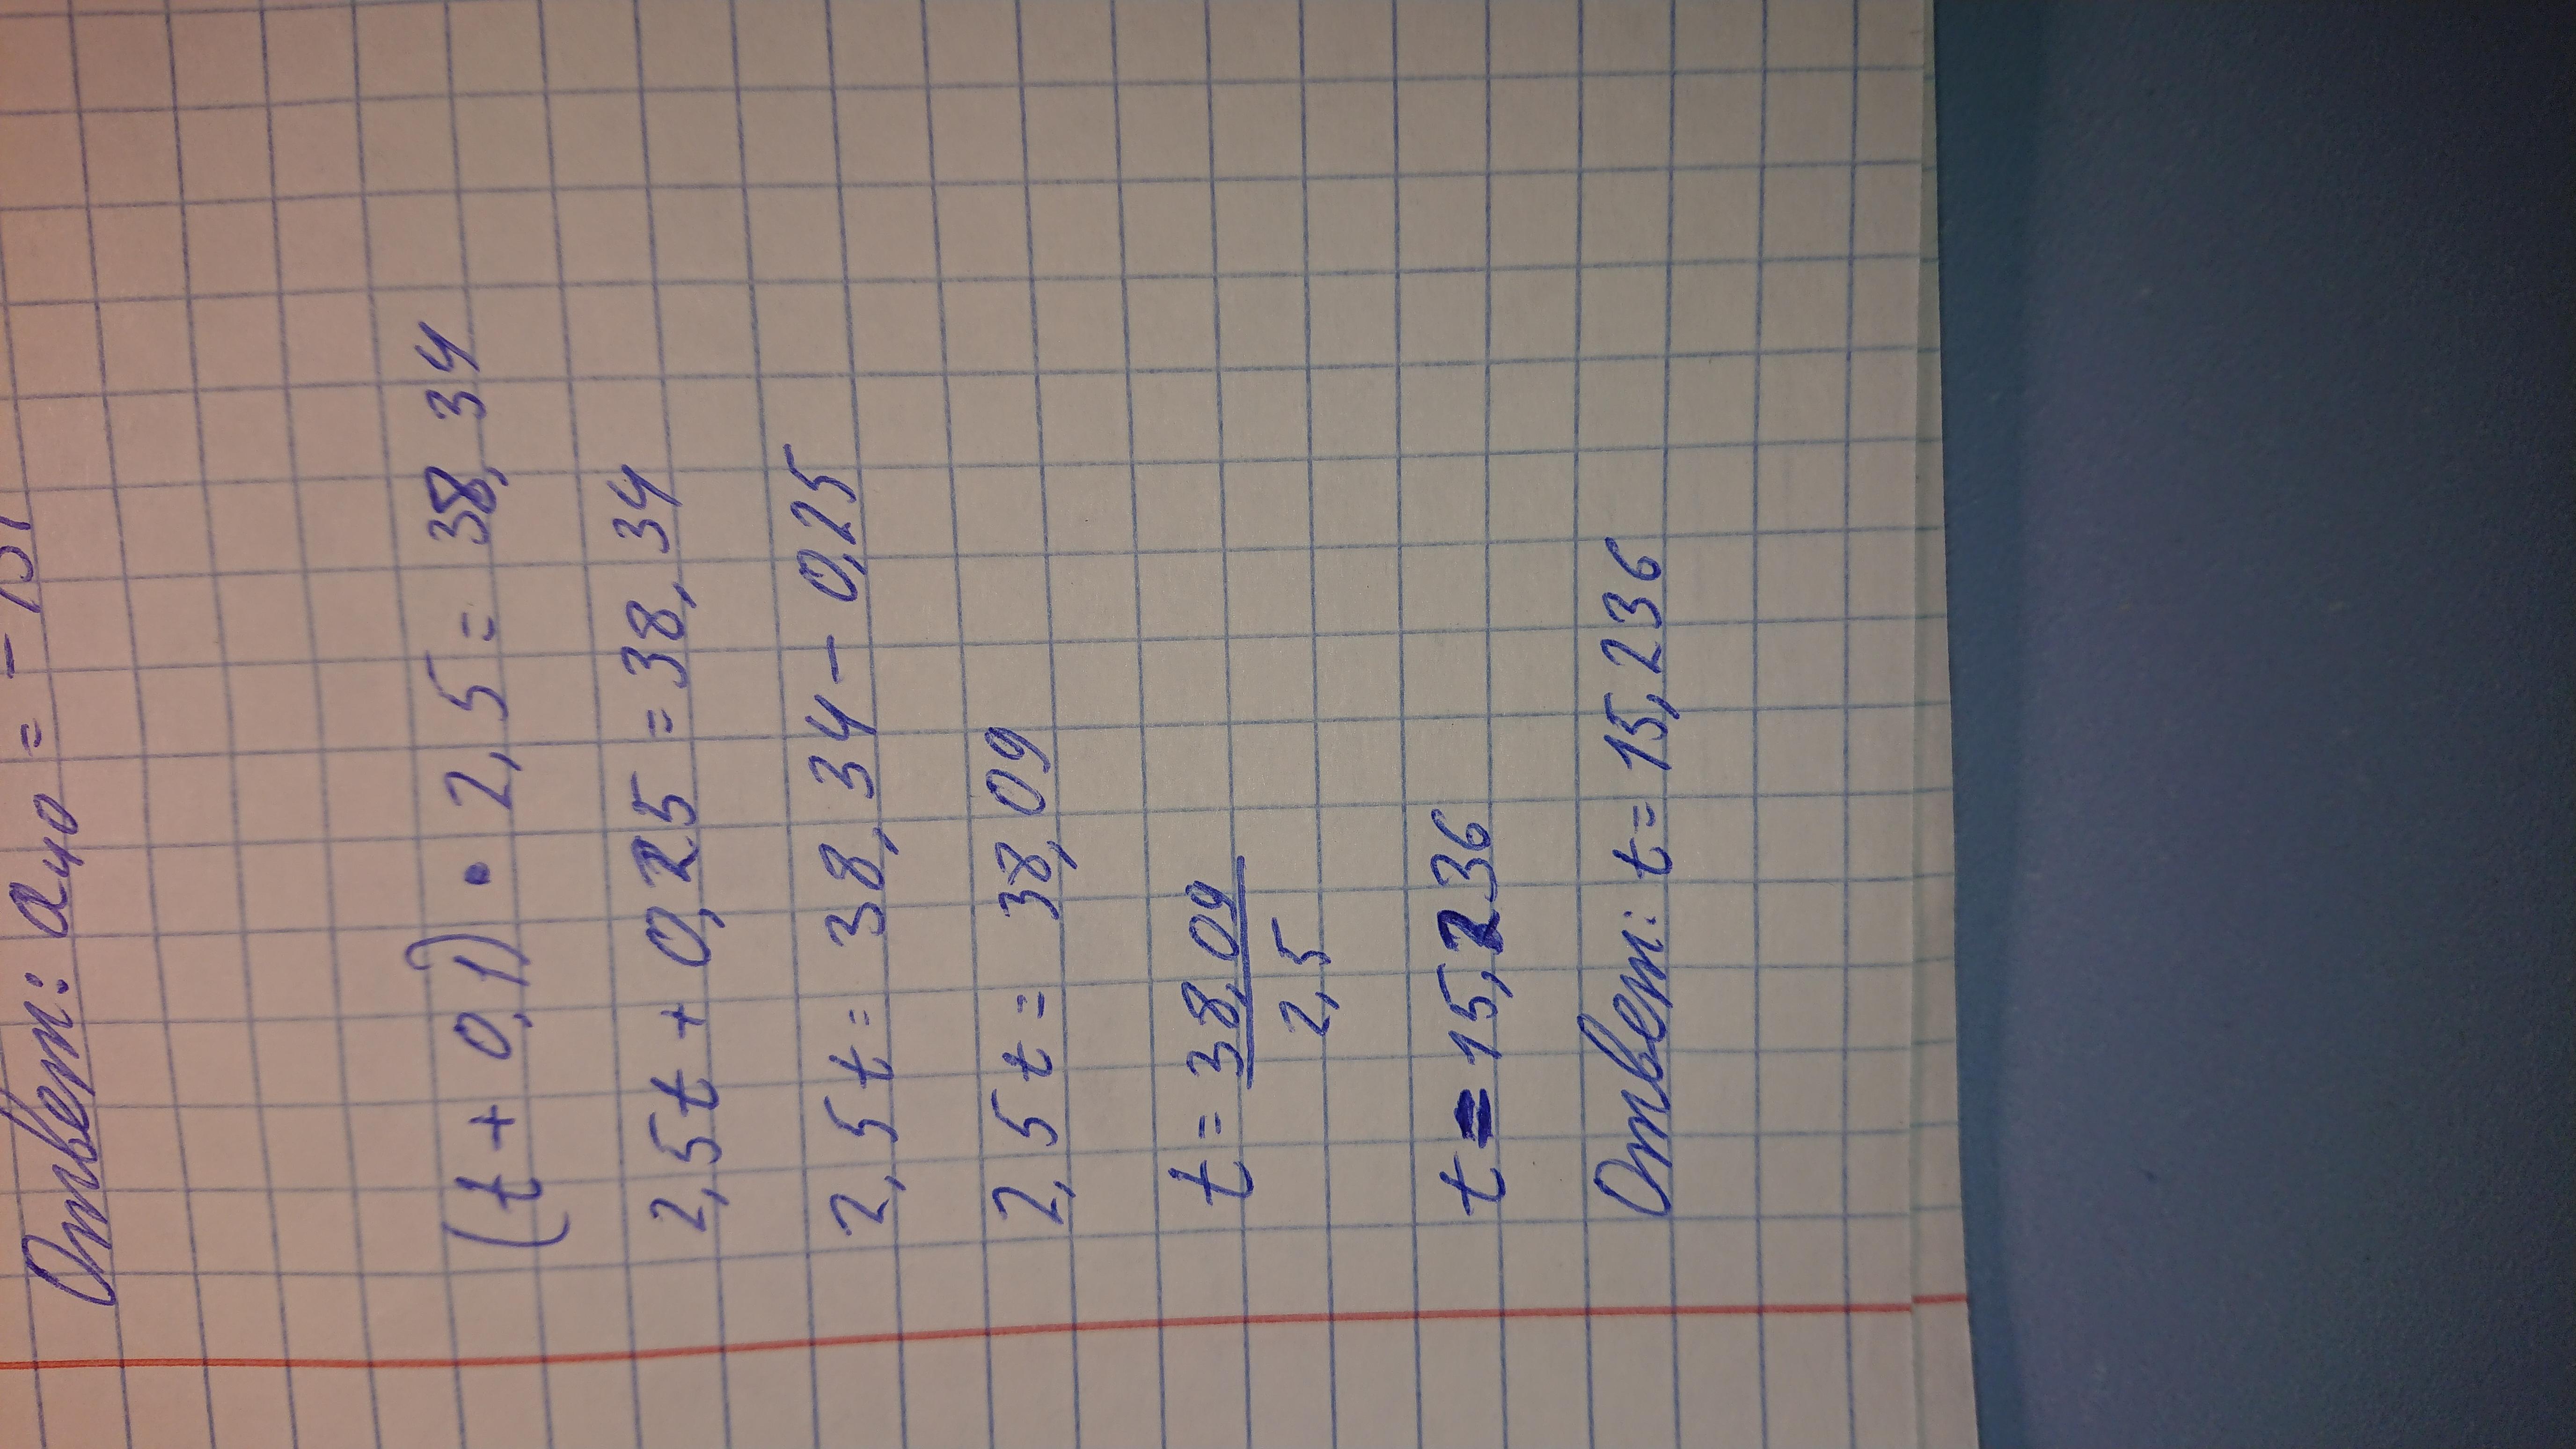 Ответ: a₄₀ = -
(t + 0,1) • 2,5 = 38,34
2,5t + 0,25 = 38,34
2,5t = 38,34 - 0,25
2,5t = 38,09
t = 38,09
2,5
t = 15,236
Ответ: t = 15,236